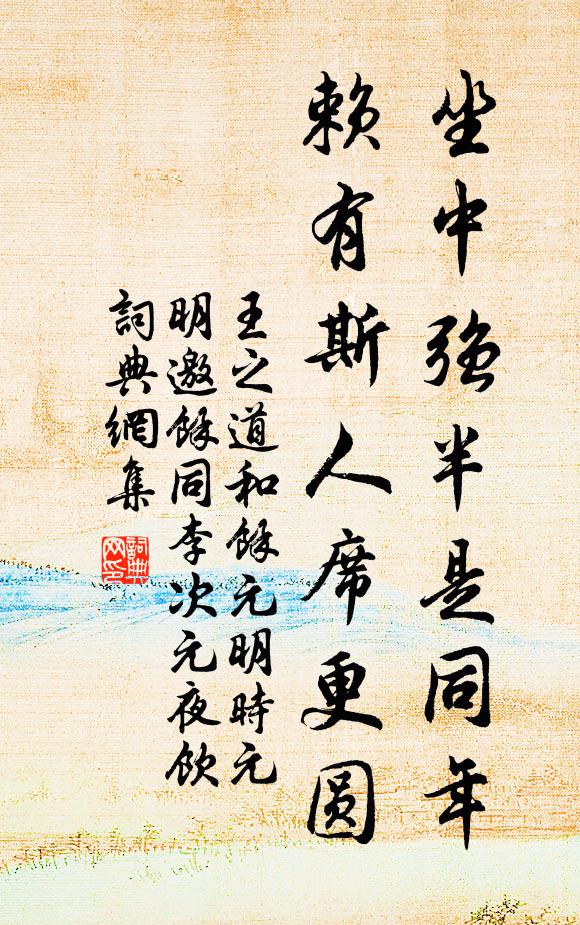 坐中強半是同年
賴有斯人席更圓
王之道和餘元明時元
明邀餘同李次元夜飲
詞典網集
詞典
网印